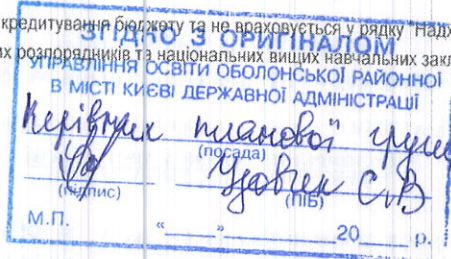 кредитування бюджету та не враховується у рядку "Надх
их розпорядників та національних вищих навчальних закл
ЗГІДНО З ОРИГІНАЛОМ
УПРАВЛІННЯ ОСВІТИ ОБОЛОНСЬКОЇ РАЙОННОЇ
В МІСТІ КИЄВІ ДЕРЖАВНОЇ АДМІНІСТРАЦІЇ
Керівник планової групи
(посада)
С.В
(підпис) (ПІБ)
М.П. "____"________20____р.